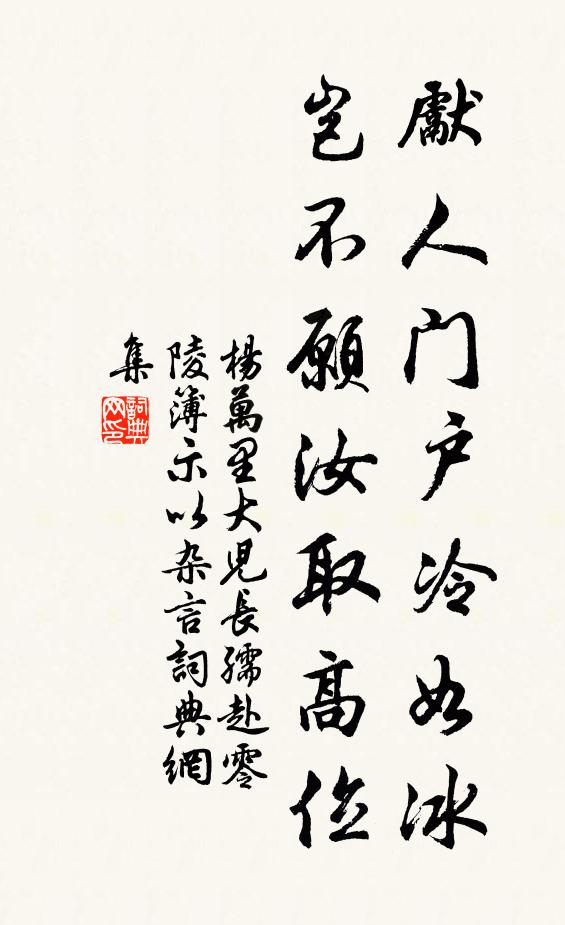 獻人门户冷如冰
豈不願汝取高位
楊萬里大兒長孺赴零
陵簿示以杂言詞典網
集
詞典
网印